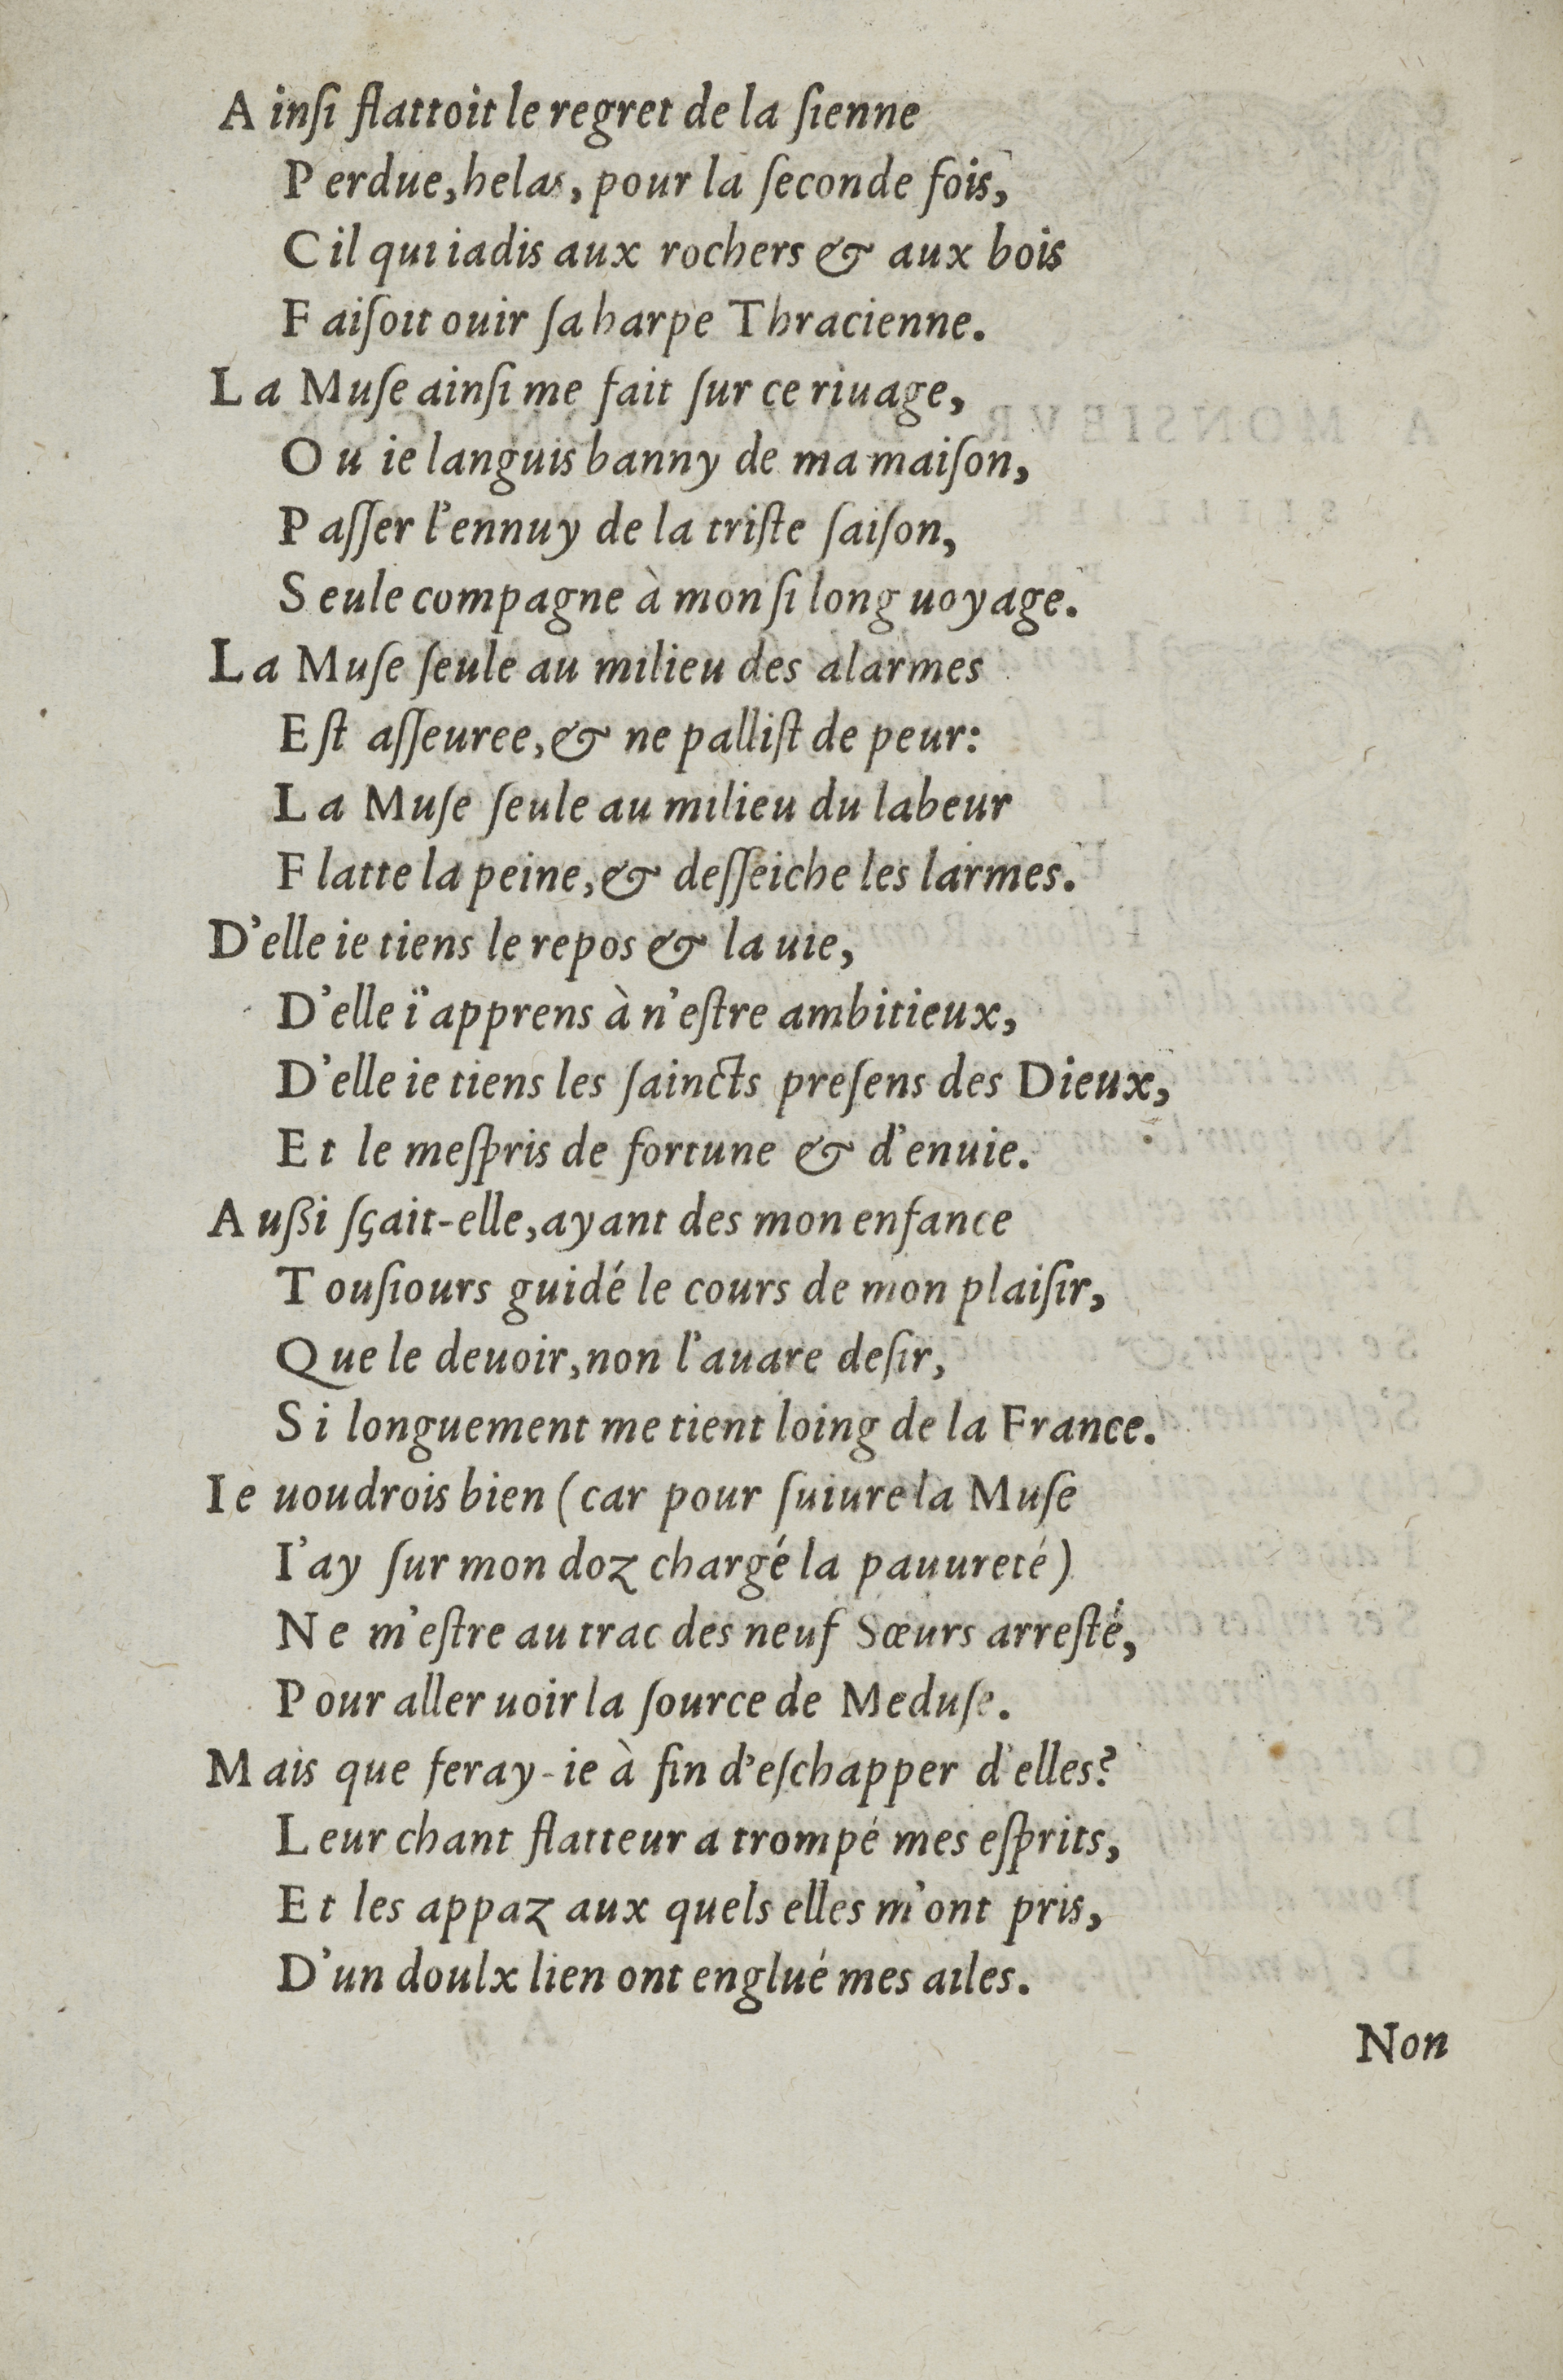 Ainſi flattoit le regret de la ſienne
Perdue, helas, pour la ſeconde fois,
Cil qui iadis aux rochers & aux bois
Faiſoit ouir ſa harpe Thracienne.
La Muſe ainſi me fait ſur ce riuage,
Ou ie languis banny de ma maiſon,
Paſſer l'ennuy de la triſte ſaiſon,
Seule compagne à mon ſi long uoyage.
La Muſe ſeule au milieu des alarmes
Eſt aſſeuree, & ne palliſt de peur:
La Muſe ſeule au milieu du labeur
Flatte la peine, & deſſeiche les larmes.
D'elle ie tiens le repos & la uie,
D'elle i'apprens à n'eſtre ambitieux,
D'elle ie tiens les ſaincts preſens des Dieux,
Et le meſpris de fortune & d'enuie.
Außi ſçait-elle, ayant des mon enfance
Touſiours guidé le cours de mon plaiſir,
Que le deuoir, non l'auare deſir,
Si longuement me tient loing de la France.
Ie uoudrois bien (car pour ſuiure la Muſe
I'ay ſur mon doz chargé la pauureté)
Ne m'eſtre au trac des neuf Sœurs arreſté,
Pour aller uoir la ſource de Meduſe.
Mais que feray-ie à fin d'eſchapper d'elles?
Leur chant flatteur a trompé mes eſprits,
Et les appaz aux quels elles m'ont pris,
D'un doulx lien ont englué mes ailes.
Non